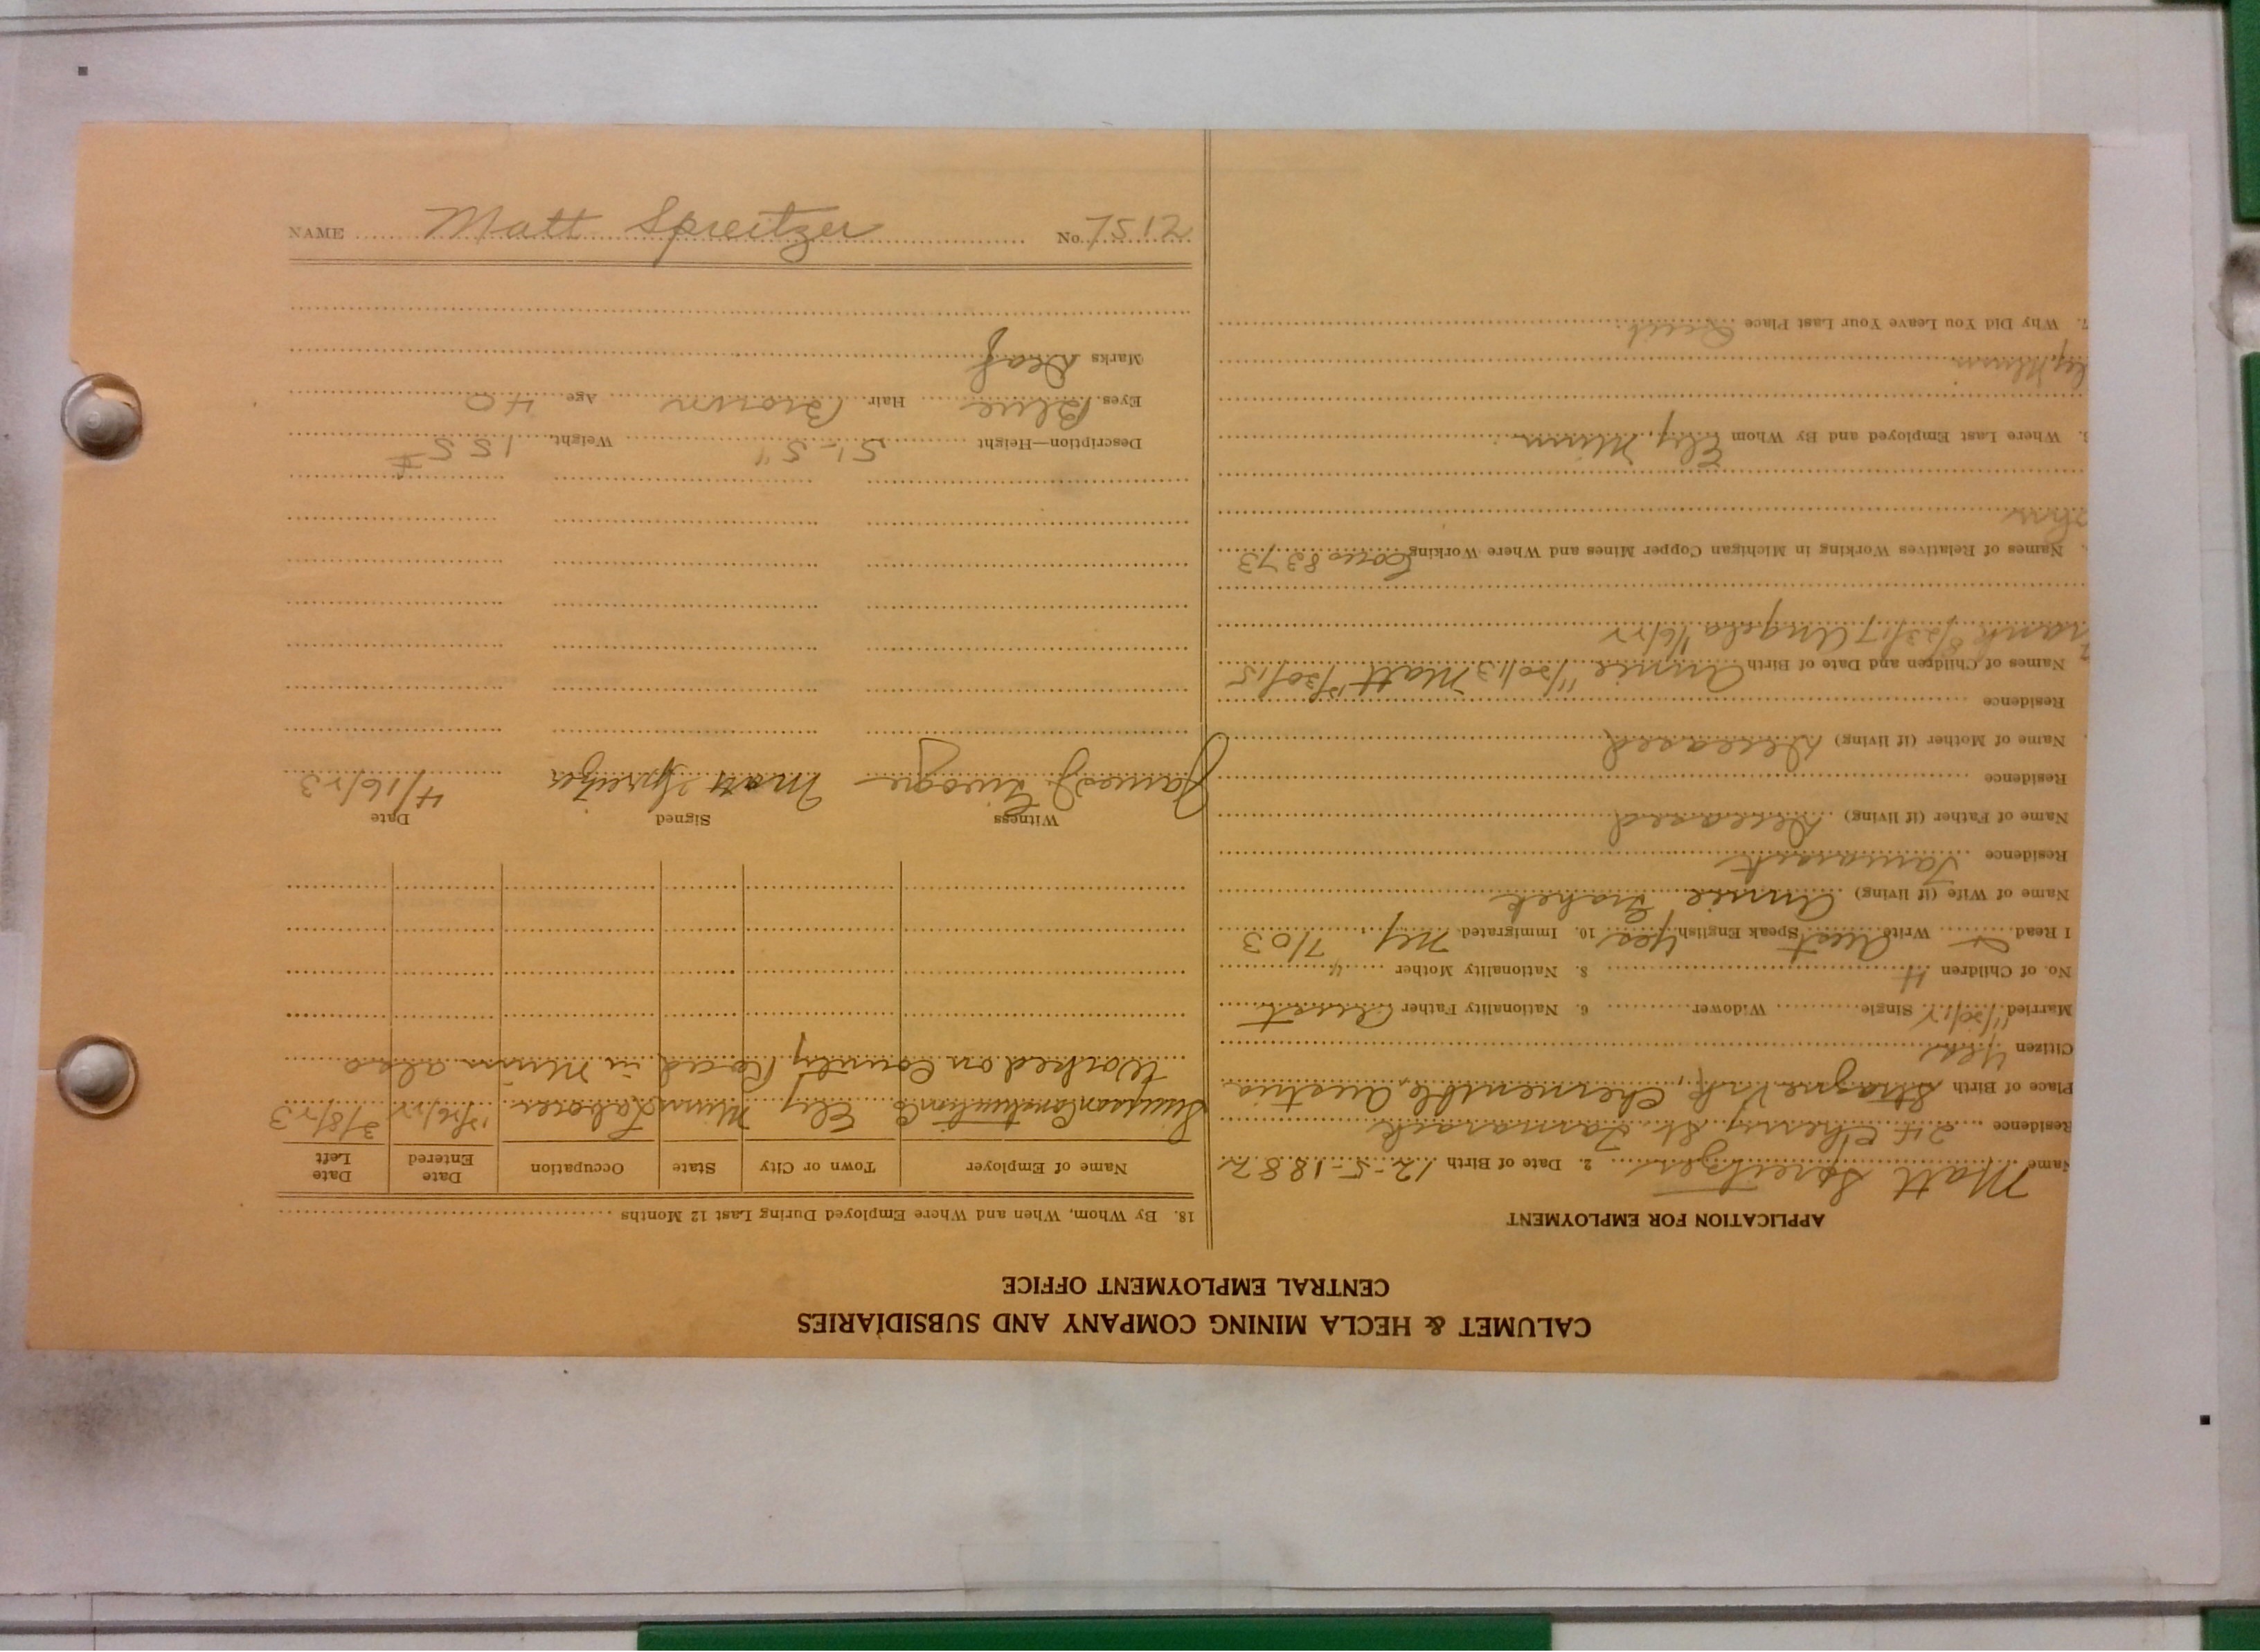 NAME Matt Spreitzer No. 7512
CALUMET & HECLA MINING COMPANY AND SUBSIDIARIES
CENTRAL EMPLOYMENT OFFICE
APPLICATION FOR EMPLOYMENT
Name Matt Spreitzer 2. Date of Birth 12-5-1882
Residence 24 Cherry St. Tamarack
Place of Birth Chernemble, Austria
Citizen Yes
Married 11/20/12 Single Widower 6. Nationality Father Aust
No. of Children 4 8. Nationality Mother "
I Read Write Aust Speak English Yes 10. Immigrated NY 7/03
Name of Wife (if living) Annie
Residence Tamarack
Name of Father (if living) Deceased
Residence
Name of Mother (if living) Deceased
Residence
Names of Children and Date of Birth Annie 11/20/13 Matt 12/20/15
8/23/17 Angela 1/6/22
Names of Relatives Working in Michigan Copper Mines and Where Working 8373
Where Last Employed and By Whom Ely, Minn
Minn
7. Why Did You Leave Your Last Place Quit
18. By Whom, When and Where Employed During Last 12 Months
Name of Employer Town or City State Occupation Date Entered Date Left
Construction Co Ely Minn Laborer 3/8/23
Worked on County Road in Minn also
Witness Signed Date
James J. Matt Spreitzer 4/16/23
Description—Height 5'-5" Weight 155 #
Eyes Blue Hair Brown Age 40
Marks Deaf